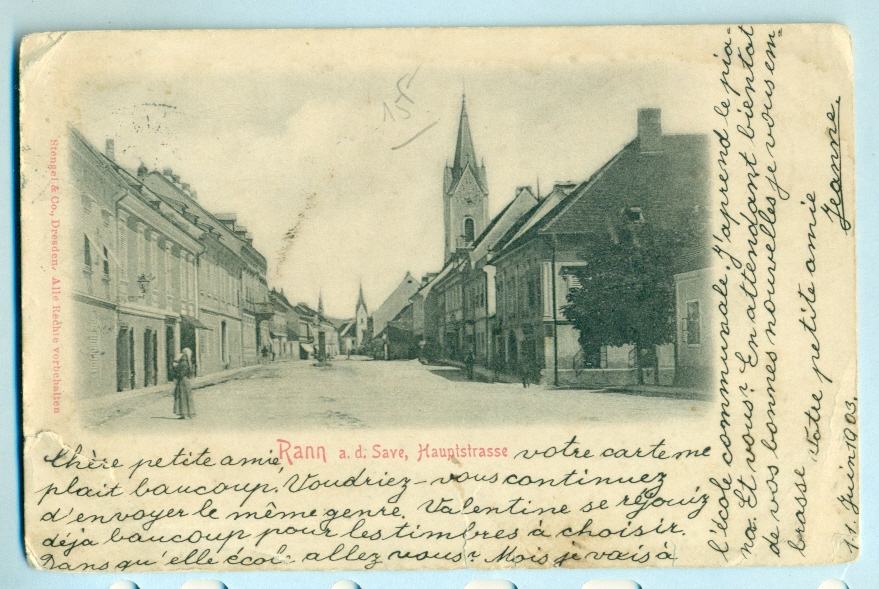 Stengel & Co., Dresden. Alle Rechte vorbehalten
15
Rann a. d. Save, Hauptstrasse
Chère petite amie votre carte me
plait baucoup. Voudriez-vous continuez
d'envoyer le même genre. Valentine se réjouiz
déja baucoup pour les timbres à choisir.
Dans qu'elle école allez vous? Mois je vais à
l'école communale. J'aprend le pia-
na. Et vous? En attendant bientot
de vos bonnes nouvelles je vous em-
brasse votre petite amie
Jeanne.
11. Juin 1903.